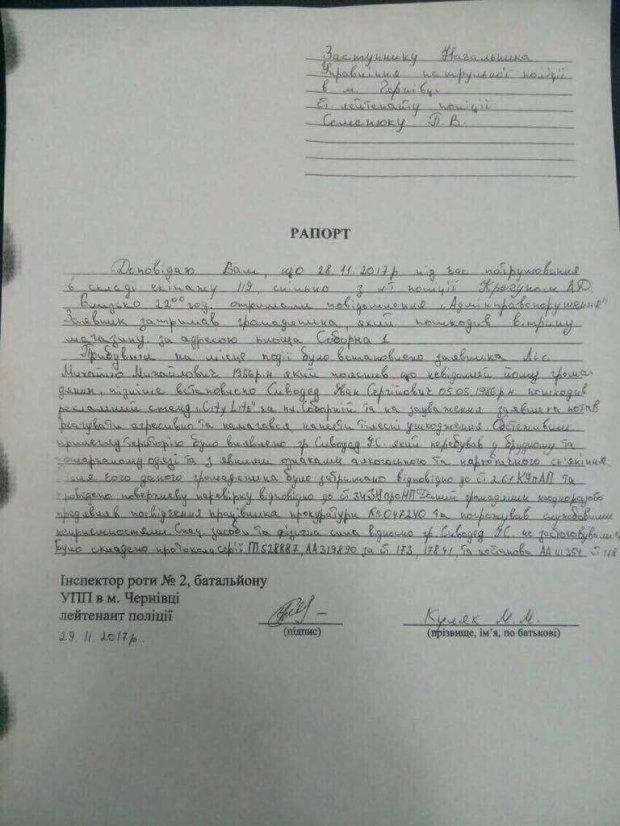 Заступнику Начальника
Управління патрульної поліції
в м. Чернівці
ст. лейтенанту поліції
Семенюку П.В.
РАПОРТ
Доповідаю Вам, що 28.11.2017р під час патрулювання
в складі екіпажу 119, спільно з л-т поліції А.Д.
Близько 22⁰⁰ год. отримали повідомлення "Адмінправопорушення"
Заявник затримав громадянина, який пошкодив вітрину
магазину за адресою площа Соборна 1
Прибувши на місце події було встановлено заявника Ліс
Михайло Михайлович 1956р.н. який пояснив що невідомий йому грома-
дянин, пізніше встановлено Сиводед Сергійович 05.05.1986р.н. пошкодив
рекламний стенд "City Life" за пл. Соборній та на зауваження заявника почав
реагувати агресивно та намагався нанести тілесні ушкодження. Обстеживши
прилеглу територію було виявлено гр. Сиводед який перебував у брудному та
одязі та з явними ознаками алкогольного та наркотичного сп'яніння
чого даного громадянина було затримано відповідно до ст 261 КУпАП та
проведено поверхневу перевірку відповідно до ст.34 ЗУ проНП. Даний громадянин неодноразово
предявляв посвідчення працівника прокуратури №047240 та погрожував службовими
неприємностями. Спец. засоби та фізична сила відносно гр. Сиводед не застосовувались
Було складено протоколи серії 528887, АА319890 за ст 173, 178ч1, та постанова АА ст
Інспектор роти № 2, батальйону
УПП в м. Чернівці
лейтенант поліції
29.11.2017р.
(підпис)
Куляк М.М.
(прізвище, ім'я, по батькові)